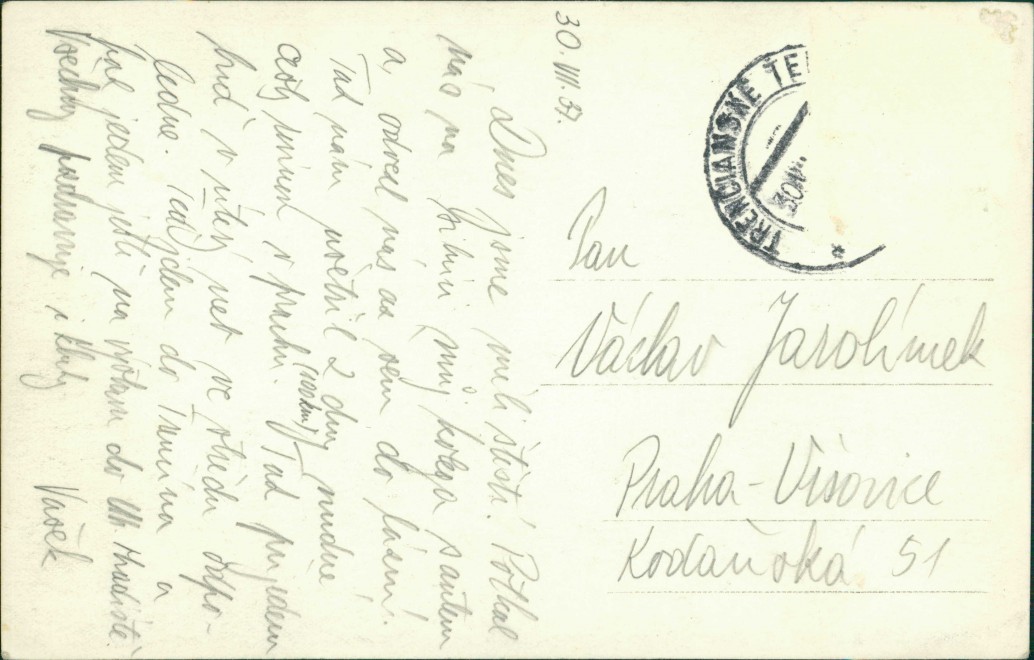 30. VIII. 37.
Dnes jsme měli štěstí. Potkal
nás na můj kolega s autem
a odvezl nás až sem do lázní.
Tad nám ušetřil 2 dny nudné
cesty v prachu. Tad přijedem
(vozmo)
buď v úterý neb ve středu odpo-
ledne. Teď jdem do Trenčína a
pak jedem ještě na výstavu do Uh. Hradiště.
Všechny pozdravuje i Kluky
Vašek
TRENČIANSKE TE
30.VIII.
Pan
Václav Jarolímek
Praha - Vršovice
Kodaňská 51